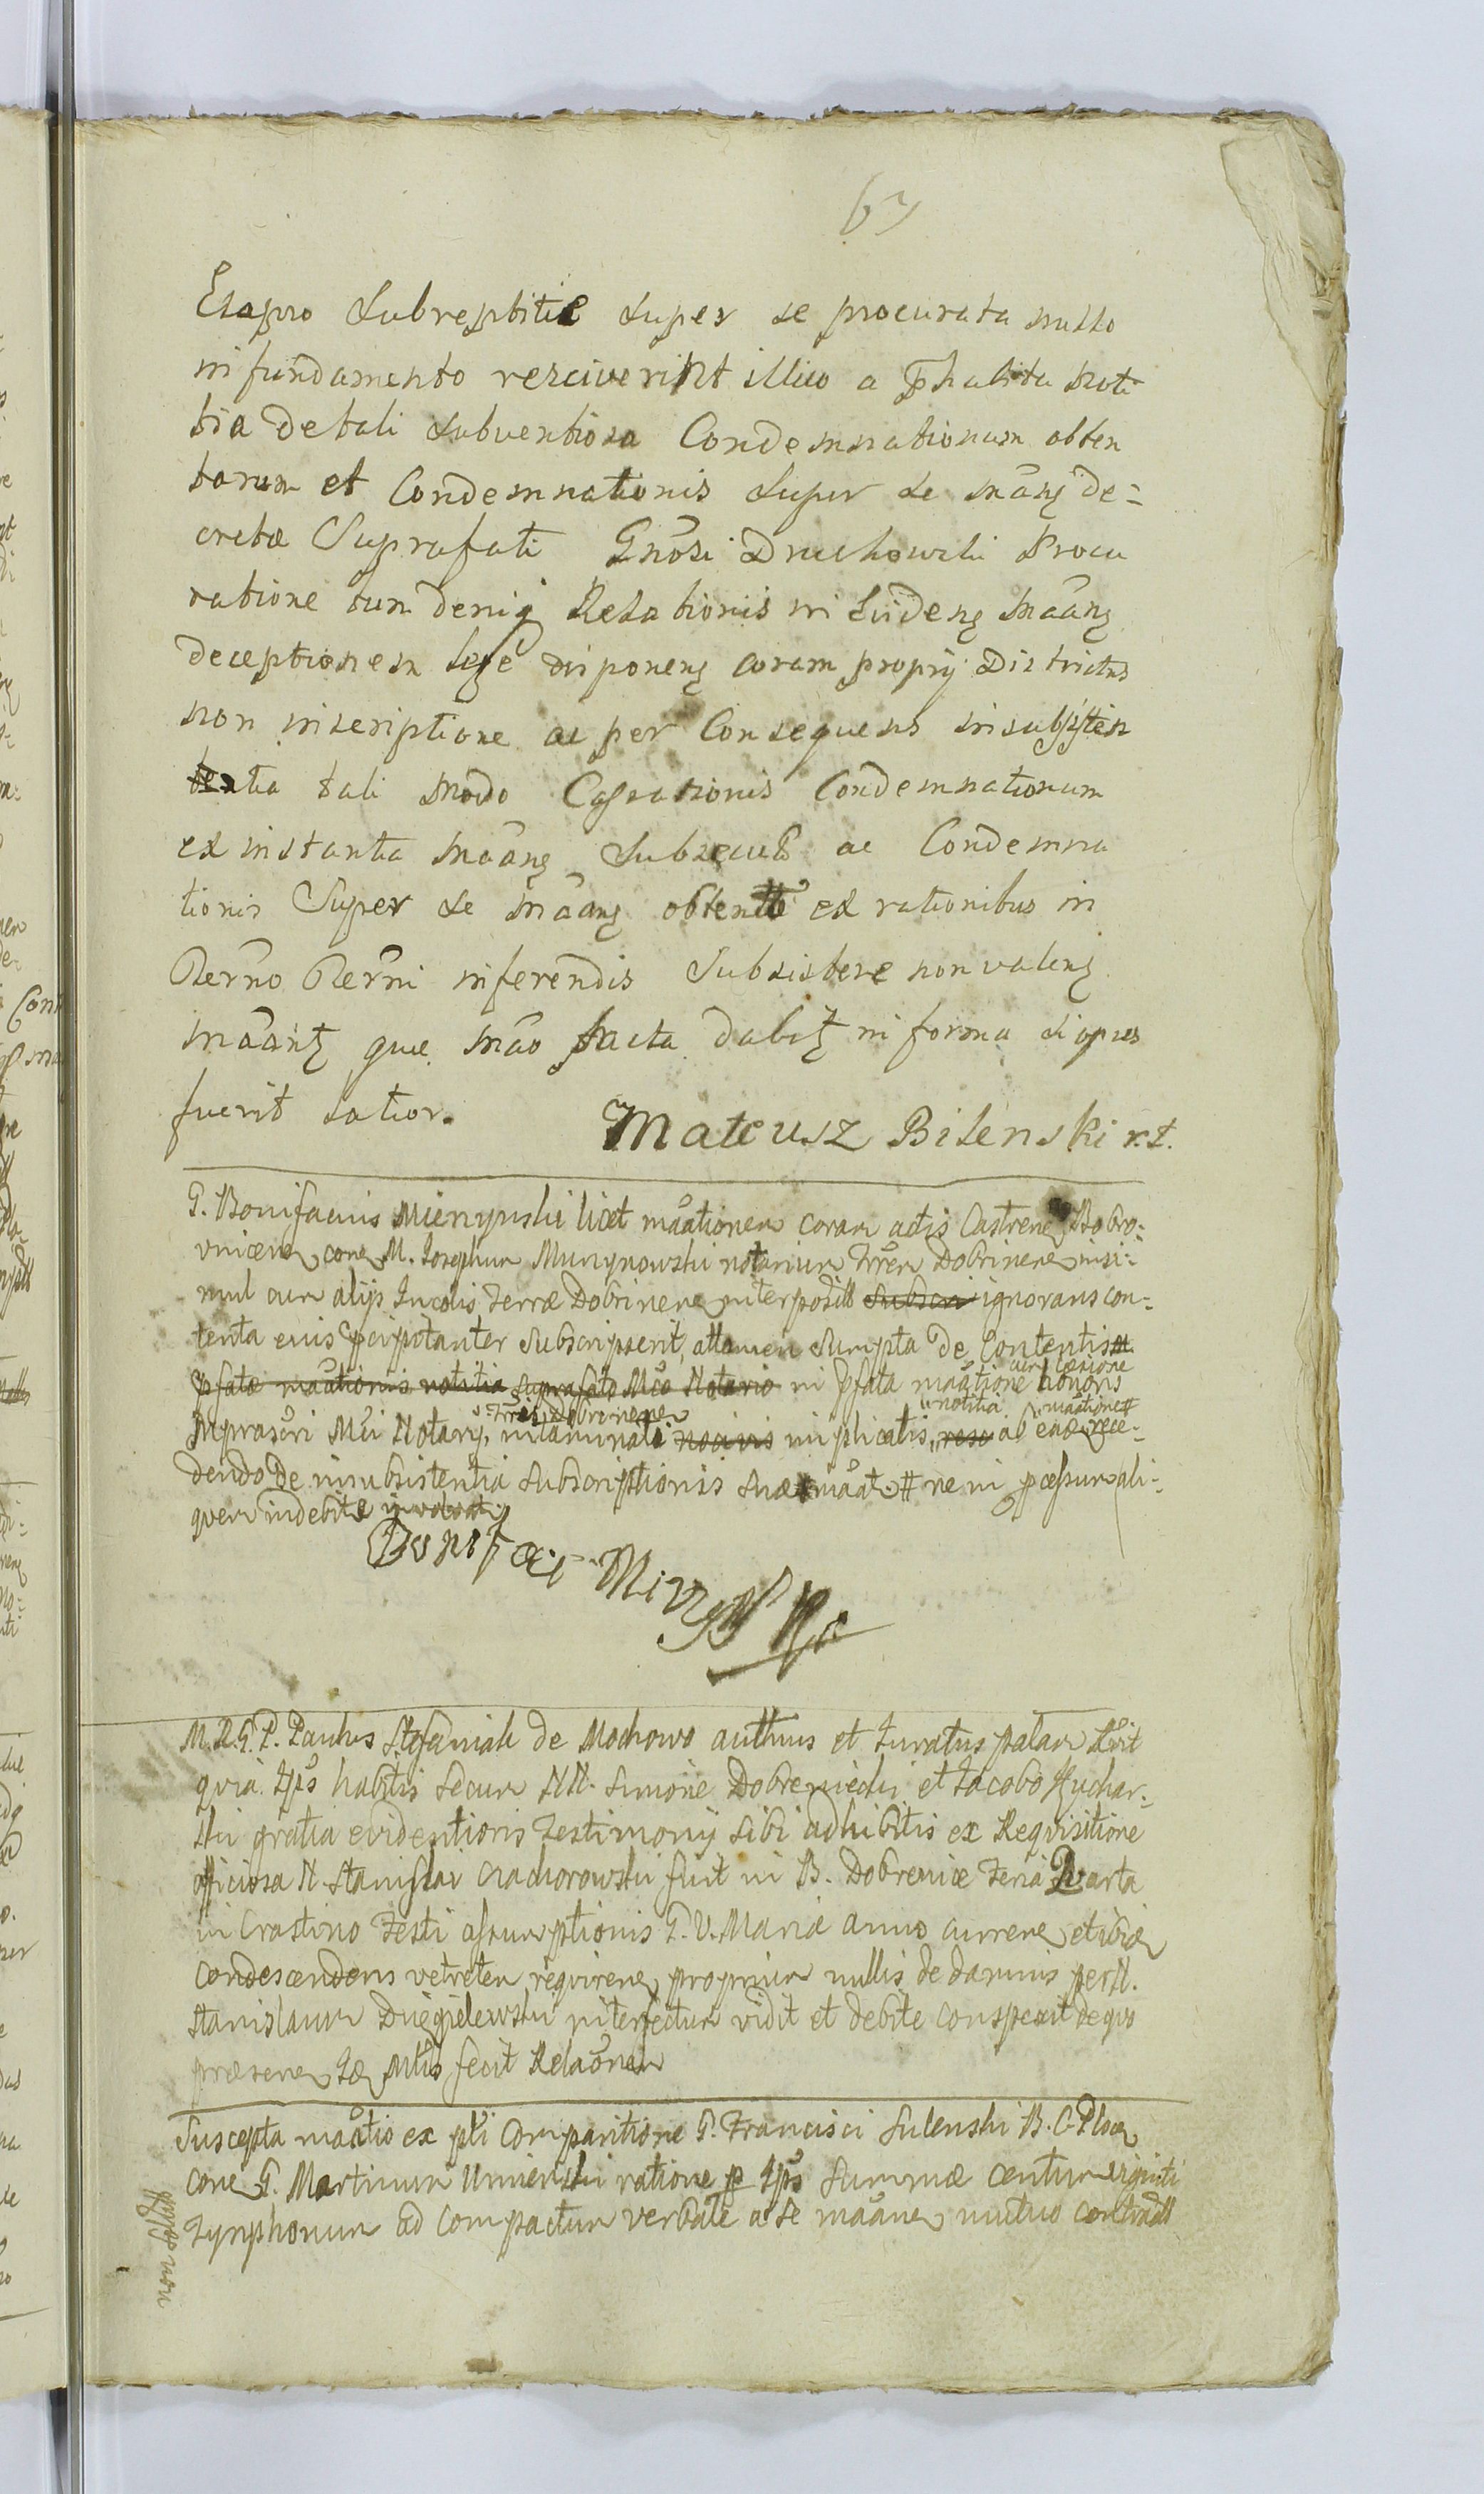 67
Esapro Subreptitie super se procurata nullo
in fundamento resciverint illico a p̄habita noti
tia de tali subventiosa Condemnationum obten
tarum et Condemnationis Super se māng de=
cretæ Suprafati Gnōsi Druchowski Procu
ratione tum deniq Relationis in Eiideng māang
deceptionem lege disponeng coram proprij Districtus
non inscriptione ac per Consequens insubsisten
tia tali modo Cassationis Condemnationum
ex instantia māang Subsecut ac Condemna
tionis Super se māang obtent ex rationibus in
Termo Termi inferendis Subsistere non valeng
māant que māo facta dabit in forma si opus
fuerit latior.
Mateusz Bilenski r.t.
G. Bonifacius Mienynski licet māationem coram actis Castreng Bobro=
vnicen cone M. Josephum Mureynowski notarium Trren Dobrinene insi=
mul cum alijs Incolis Terræ Dobrinene interposit Subscri ignorans con=
tenta eius pcipitanter subscripserit, attamen sumpta de Contentis
pfatæ māationis notitia suprafato Mco Notario in pfata māatione cum læsione honoris
suprascri Mci Notarij, Trrei Dobrinene intaminati nocivis implicatis, notitia reso ab eadem māatione rece=
dendo de insubsistentia subscriptionis suæ māat. # ne in pæssum ali=
quem indebite involvat
Bonifaci
M.R.G.P. Paulus Stefaniak de Mochowo authus et Juratus palam Recit
quia Ips habitis secum NN. Simone Dobreniecki et Jacobo Kuchar=
ski gratia evidentioris Testimonij sibi adhibitis ex Requisitione
officiosa N. Stanislai Crachorowski fuit in B. Dobrenice Feria Quarta
in Crastino Festi assumptionis G.V. Mariæ anno currene et ibid
condescendens vetretem requirene proprium nullis de damnis per N.
Stanislaum Duegielewski interfectum vidit et debite conspexit de quo
præsene Jæ Mtis fecit Relāonem
Suscepta māatio ex pti Comparitione G. Francisci Sulenski B.C. Ploc
cone G. Martinum Umienski ratione p Ips summæ centum viginti
Tynphonum ad compactum verbale a se māane mutuo contract